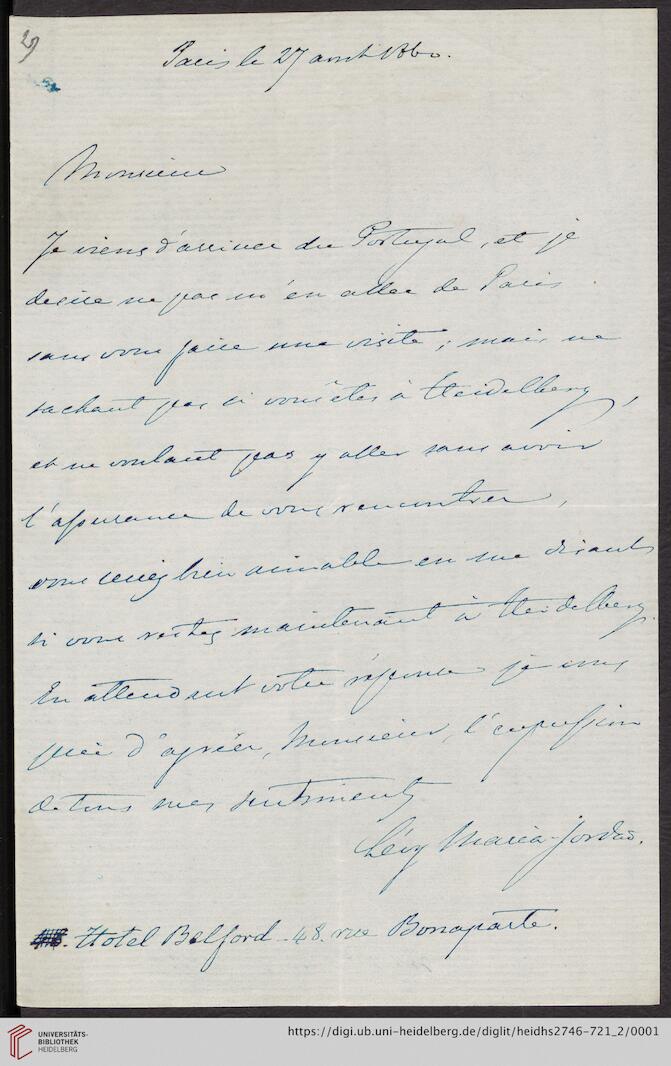 Paris le 27 avril 1860.
Monsieur
Je viens d'arriver du Portugal, et je
desire ne pas m'en aller de Paris
sans vous faire une visite; mais ne
sachant pas si vous êtes à Heidelberg,
et ne voulant pas y aller sans avoir
l'assurance de vous rencontrer,
vous seriez bien aimable en me disant
si vous restez maintenant à Heidelberg.
En attendant votre réponse je vous
prie d'agréer, Monsieur, l'expression
de tous mes sentiments
Lévy Maria Jordão.
Hotel Belford - 48. rue Bonaparte.
UNIVERSITÄTS-
BIBLIOTHEK
HEIDELBERG
https://digi.ub.uni-heidelberg.de/diglit/heidhs2746-721_2/0001